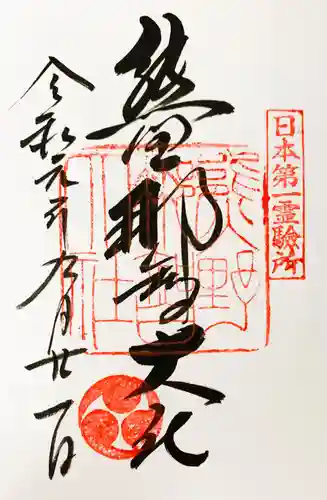 日本第一霊験所
熊野那智大社
令和元年九月廿一日
熊野
大社